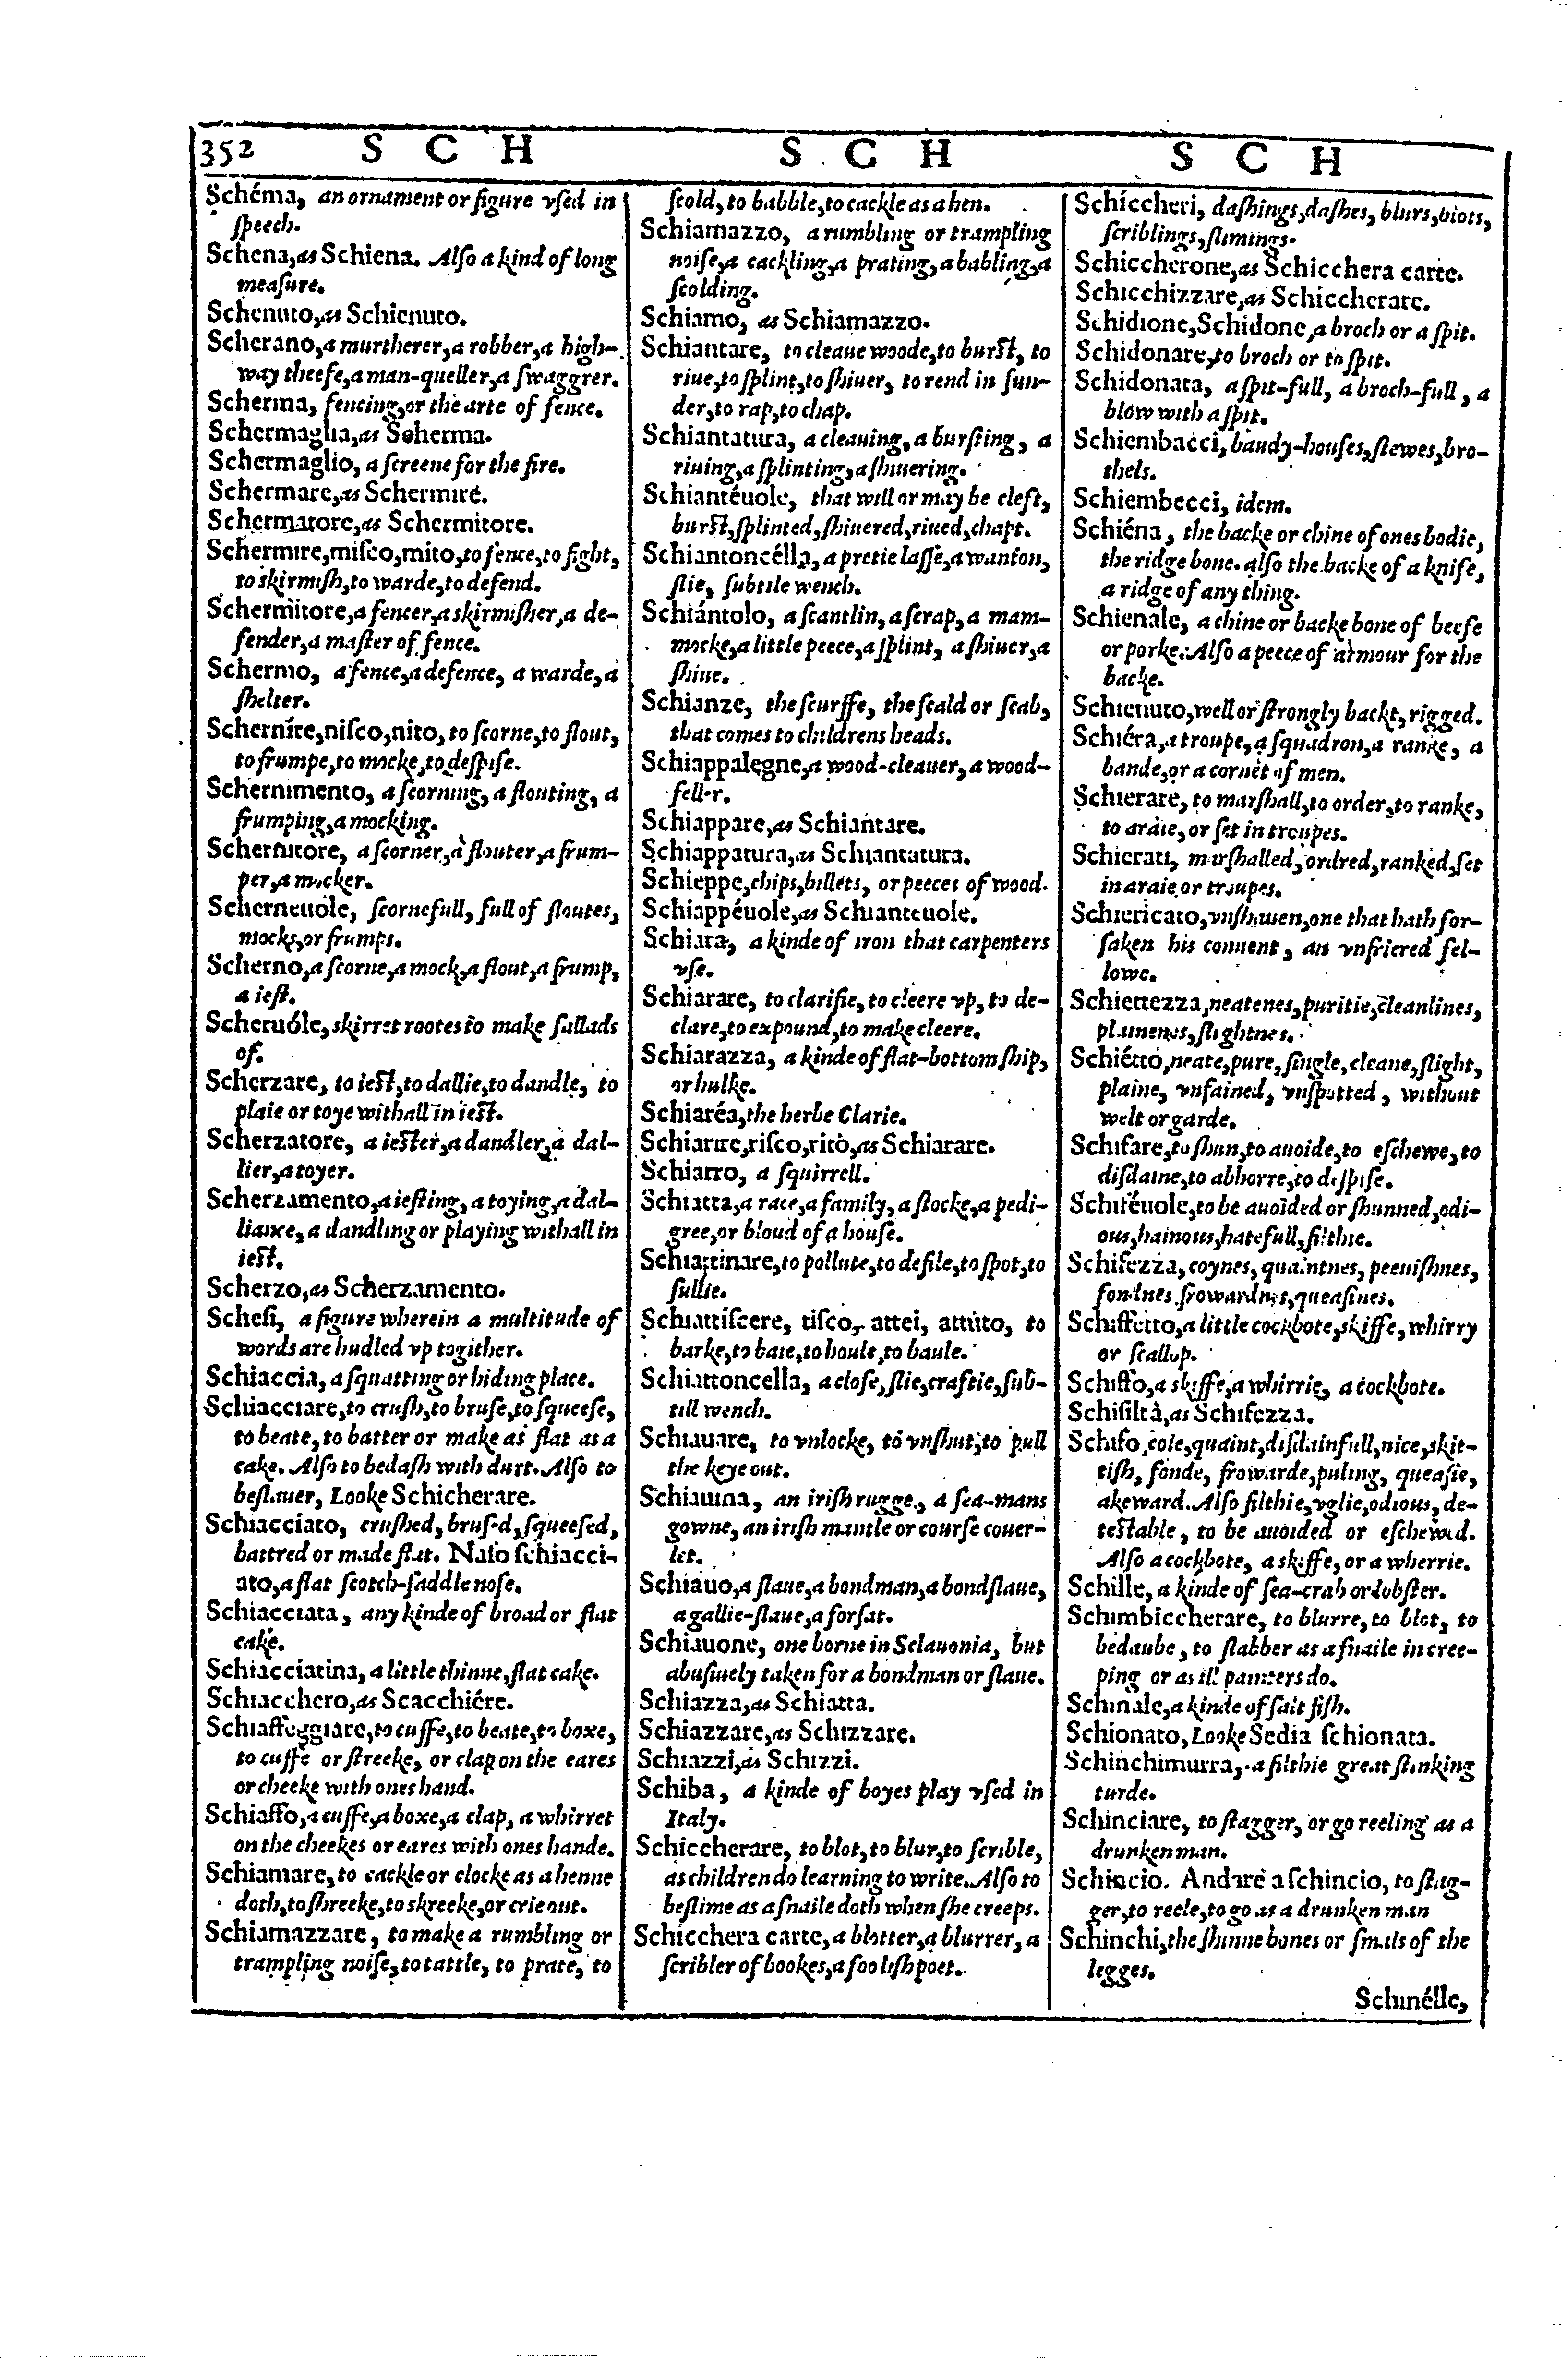 352 S C H S C H S C H
Schéma, an ornament or figure vſed in
ſpeech.
Schena, as Schiena. Alſo a kind of long
meaſure.
Schenuto, as Schienuto.
Scherano, a murtherer, a robber, a high-
way theefe, a man-queller, a ſwaggrer.
Scherma, fencing, or the arte of fence.
Schermaglia, as Scherma.
Schermaglio, a ſcreene for the fire.
Schermare, as Schermire.
Schermatore, as Schermitore.
Schermire, miſco, mito, to fence, to fight,
to skirmiſh, to warde, to defend.
Schermitore, a fencer, a skirmiſher, a de-
fender, a maſter of fence.
Schermo, a fence, a defence, a warde, a
ſhelter.
Scherníre, niſco, nito, to ſcorne, to flout,
to frumpe, to mocke, to deſpiſe.
Schernimento, a ſcorning, a flouting, a
frumping, a mocking.
Schernitore, a ſcorner, a flouter, a frum-
per, a mocker.
Scherneuole, ſcornefull, full of floutes,
mocks, or frumps.
Scherno, a ſcorne, a mock, a flout, a frump,
a ieſt.
Scheruóle, skirret rootes to make ſallads
of.
Scherzare, to ieſt, to dallie, to dandle, to
plaie or toye withall in ieſt.
Scherzatore, a ieſter, a dandler, a dal-
lier, a toyer.
Scherzamento, a ieſting, a toying, a dal-
liance, a dandling or playing withall in
ieſt.
Scherzo, as Scherzamento.
Scheſi, a figure wherein a multitude of
words are hudled vp togither.
Schiaccia, a ſquatting or hiding place.
Schiacciare, to cruſh, to bruſe, to ſqueeſe,
to beate, to batter or make as flat as a
cake. Alſo to bedaſh with durt. Alſo to
beſlauer, Looke Schicherare.
Schiacciato, cruſhed, bruſed, ſqueeſed,
battred or made flat. Naſo ſchiacci-
ato, a flat ſcotch-ſaddle noſe.
Schiacciata, any kinde of broad or flat
cake.
Schiacciatina, a little thinne, flat cake.
Schiacchero, as Scacchiére.
Schiaffeggiare, to cuffe, to beate, to boxe,
to cuffe or ſtreeke, or clap on the eares
or cheeke with ones hand.
Schiaffo, a cuffe, a boxe, a clap, a whirret
on the cheekes or eares with ones hande.
Schiamare, to cackle or clocke as a henne
doth, to ſhreeke, to skreeke, or crie out.
Schiamazzare, to make a rumbling or
trampling noiſe, to tattle, to prate, to
ſcold, to babble, to cackle as a hen.
Schiamazzo, a rumbling or trampling
noiſe, a cackling, a prating, a babling, a
ſcolding.
Schiamo, as Schiamazzo.
Schiantare, to cleaue woode, to burſt, to
riue, to ſplint, to ſhiuer, to rend in ſun-
der, to rap, to chap.
Schiantatura, a cleauing, a burſting, a
riuing, a ſplinting, a ſhiuering.
Schiantéuole, that will or may be cleft,
burſt, ſplinted, ſhiuered, riued, chapt.
Schiantoncélla, a pretie laſſe, a wanton,
ſlie, ſubtile wench.
Schiántolo, a ſcantlin, a ſcrap, a mam-
mocke, a little peece, a ſplint, a ſhiuer, a
ſhiue.
Schianze, the ſcurffe, the ſcald or ſcab,
that comes to childrens heads.
Schiappalegne, a wood-cleauer, a wood-
feller.
Schiappare, as Schiantare.
Schiappatura, as Schiantatura.
Schieppe, chips, billets, or peeces of wood.
Schiappéuole, as Schianteuole.
Schiara, a kinde of iron that carpenters
vſe.
Schiarare, to clarifie, to cleere vp, to de-
clare, to expound, to make cleere.
Schiarazza, a kinde of flat-bottom ſhip,
or hulke.
Schiaréa, the herbe Clarie.
Schiarire, riſco, rito, as Schiarare.
Schiarro, a ſquirrell.
Schiatta, a race, a family, a ſtocke, a pedi-
gree, or bloud of a houſe.
Schiattinare, to pollute, to defile, to ſpot, to
ſullie.
Schiattiſcere, tiſco, attei, attito, to
barke, to baie, to houle, to baule.
Schiattoncella, a cloſe, ſlie, craftie, ſub-
till wench.
Schiauare, to vnlocke, to vnſhut, to pull
the keye out.
Schiauina, an iriſh rugge, a ſea-mans
gowne, an iriſh mantle or courſe couer-
let.
Schiauo, a ſlaue, a bondman, a bondſlaue,
a gallie-ſlaue, a forſat.
Schiauone, one borne in Sclauonia, but
abuſiuely taken for a bondman or ſlaue.
Schiazza, as Schiatta.
Schiazzare, as Schizzare.
Schiazzi, as Schizzi.
Schiba, a kinde of boyes play vſed in
Italy.
Schiccherare, to blot, to blur, to ſcrible,
as children do learning to write. Alſo to
beſlime as a ſnaile doth when ſhe creeps.
Schicchera carte, a blotter, a blurrer, a
ſcribler of bookes, a fooliſh poet.
Schiccheri, daſhings, daſhes, blurs, blots,
ſcriblings, ſlimings.
Schiccherone, as Schicchera carte.
Schicchizzare, as Schiccherare.
Schidione, Schidone, a broch or a ſpit.
Schidonare, to broch or to ſpit.
Schidonata, a ſpit-full, a broch-full, a
blow with a ſpit.
Schiembacci, baudy-houſes, ſtewes, bro-
thels.
Schiembecci, idem.
Schiéna, the backe or chine of ones bodie,
the ridge bone. alſo the backe of a knife,
a ridge of any thing.
Schienale, a chine or backe bone of beefe
or porke. Alſo a peece of armour for the
backe.
Schienuto, well or ſtrongly backt, rigged.
Schiéra, a troupe, a ſquadron, a ranke, a
bande, or a cornet of men.
Schierare, to marſhall, to order, to ranke,
to araie, or ſet in troupes.
Schierati, marſhalled, ordred, ranked, ſet
in araie or troupes.
Schiericato, vnſhauen, one that hath for-
ſaken his conuent, an vnfriered fel-
lowe.
Schiettezza, neatenes, puritie, cleanlines,
plainenes, ſlightnes.
Schiétto, neate, pure, ſingle, cleane, ſlight,
plaine, vnfained, vnſpotted, without
welt or garde.
Schifare, to ſhun, to auoide, to eſchewe, to
diſdaine, to abhorre, to deſpiſe.
Schiféuole, to be auoided or ſhunned, odi-
ous, hainous, hatefull, filthie.
Schifezza, coynes, quaintnes, peeuiſhnes,
fondnes, frowardnes, queaſines.
Schiffetto, a little cockbote, skiffe, whirry
or ſcallop.
Schiffo, a skiffe, a whirrie, a cockbote.
Schifiltà, as Schifezza.
Schifo, coie, quaint, diſdainfull, nice, skit-
tiſh, fonde, frowarde, puling, queaſie,
akeward. Alſo filthie, vglie, odious, de-
teſtable, to be auoided or eſchewed.
Alſo a cockbote, a skiffe, or a wherrie.
Schille, a kinde of ſea-crab or lobſter.
Schimbiccherare, to blurre, to blot, to
bedaube, to ſlabber as a ſnaile in cree-
ping or as ill painters do.
Schinale, a kinde of ſalt fiſh.
Schionato, Looke Sedia ſchionata.
Schinchimurra, a filthie great ſtinking
turde.
Schinciare, to ſtagger, or go reeling as a
drunken man.
Schincio. Andare a ſchincio, to ſtag-
ger, to reele, to go as a drunken man
Schinchi, the ſhinne bones or ſmals of the
legges.
Schinélle,